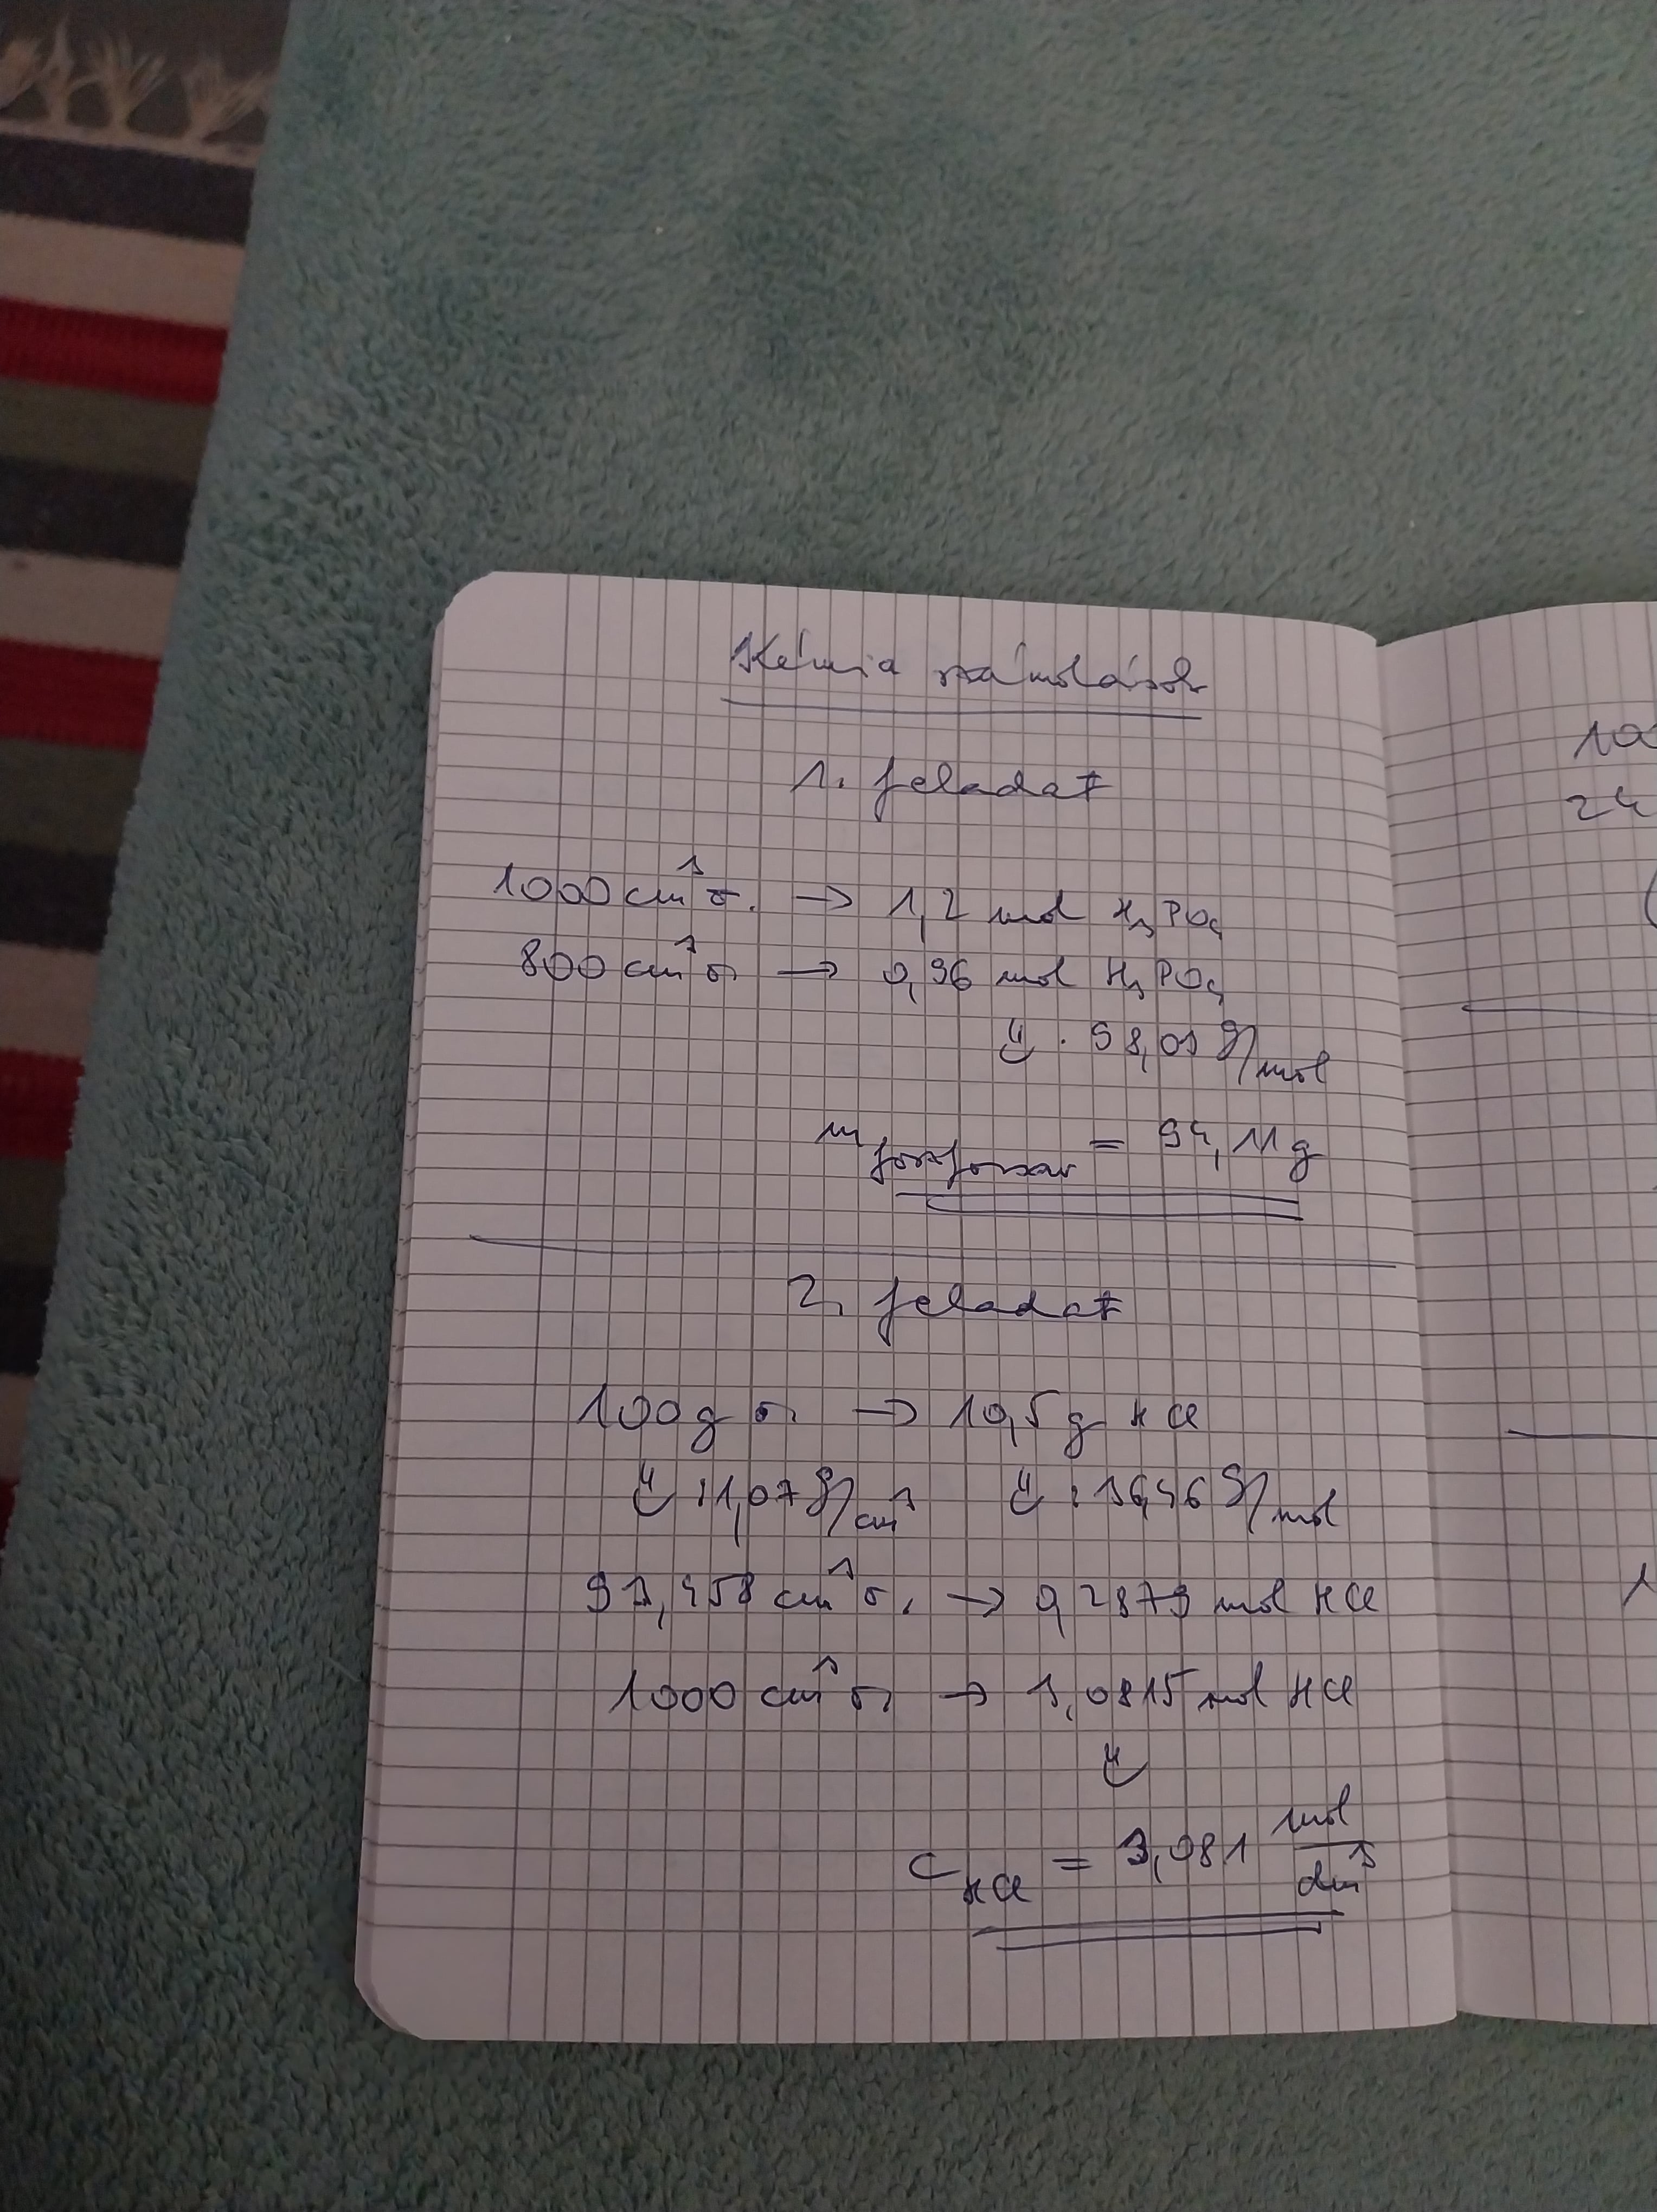 Kémia számolások
1. feladat
1000 cm³ o. → 1,2 mol H₃PO₄
800 cm³ o. → 0,96 mol H₃PO₄
↓ · 98,03 g/mol
m foszforsav = 94,11 g
2. feladat
100 g o. → 10,5 g HCl
↓ : 1,07 g/cm³ ↓ : 36,46 g/mol
93,458 cm³ o. → 0,2879 mol HCl
1000 cm³ o. → 3,0815 mol HCl
↓
c HCl = 3,081 mol/dm³
100
24